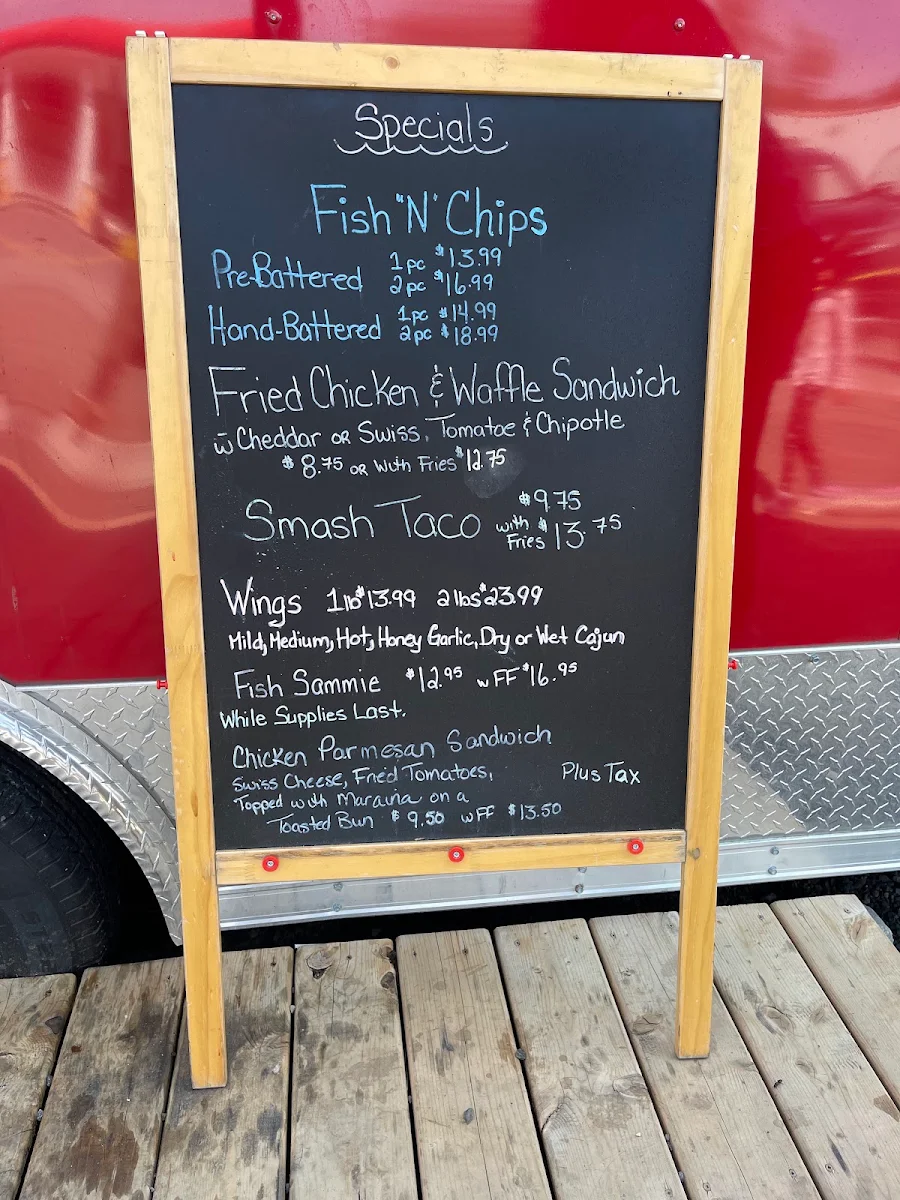 Specials
Fish "N" Chips
Pre-Battered 1pc $13.99
2pc $16.99
Hand-Battered 1pc $14.99
2pc $18.99
Fried Chicken & Waffle Sandwich
w Cheddar or Swiss, Tomatoe & Chipotle
$8.75 or with Fries $12.75
Smash Taco $9.75
with Fries $13.75
Wings 1lb $13.99 2lbs $23.99
Mild, Medium, Hot, Honey Garlic, Dry or Wet Cajun
Fish Sammie $12.95 w FF $16.95
While Supplies Last.
Chicken Parmesan Sandwich
Swiss Cheese, Fried Tomatoes,
Plus Tax
Topped with Maraina on a
Toasted Bun $9.50 w FF $13.50